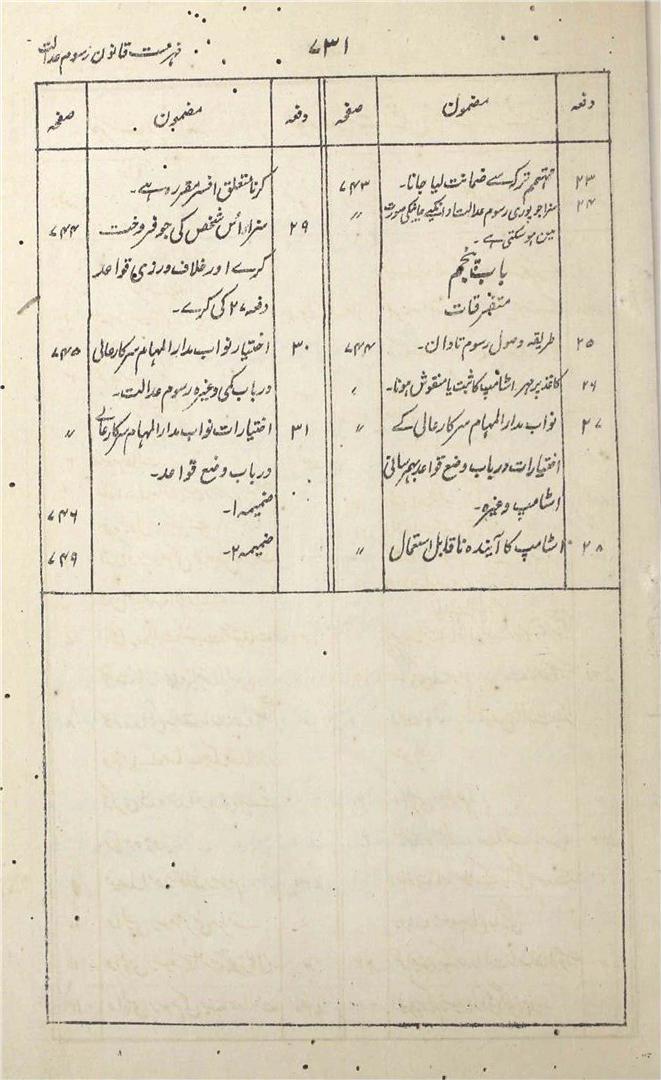 ۷۳۱
فہرست قانون رسوم عدالت
دفعہ
مضمون
صفحہ
۲۳
مہتمم ترکہ سے ضمانت لیا جانا۔
۷۴۳
۲۴
سزا جو پوری رسوم عدالت ادا نکیے جانیکی صورت
〃
میں ہوسکتی ہے۔
باب پنجم
متفرقات
۲۵
طریقہ وصول رسوم تاوان۔
۷۴۴
۲۶
کاغذ پر مہر اسٹامپ کا ثبت یا منقوش ہونا۔
۲۷
نواب مدار المہام سرکار عالی کے
〃
اختیارات درباب وضع قواعد بہم رسانی
اسٹامپ وغیرہ۔
۲۸
اسٹامپ کا آیندہ ناقابل استعمال
〃
دفعہ
مضمون
صفحہ
کرنا متعلق افسر مقررہ ہے۔
۲۹
سزا اُس شخص کی جو فروخت
۷۴۴
کرے اور خلاف ورزی قواعد
دفعہ ۲۷ کی کرے۔
۳۰
اختیار نواب مدار المہام سرکار عالی
۷۴۵
درباب کمی وغیرہ رسوم عدالت۔
۳۱
اختیارات نواب مدار المہام سرکار عالی
〃
درباب وضع قواعد۔
ضمیمہ ۱۔
۷۴۶
ضمیمہ ۲۔
۷۴۹